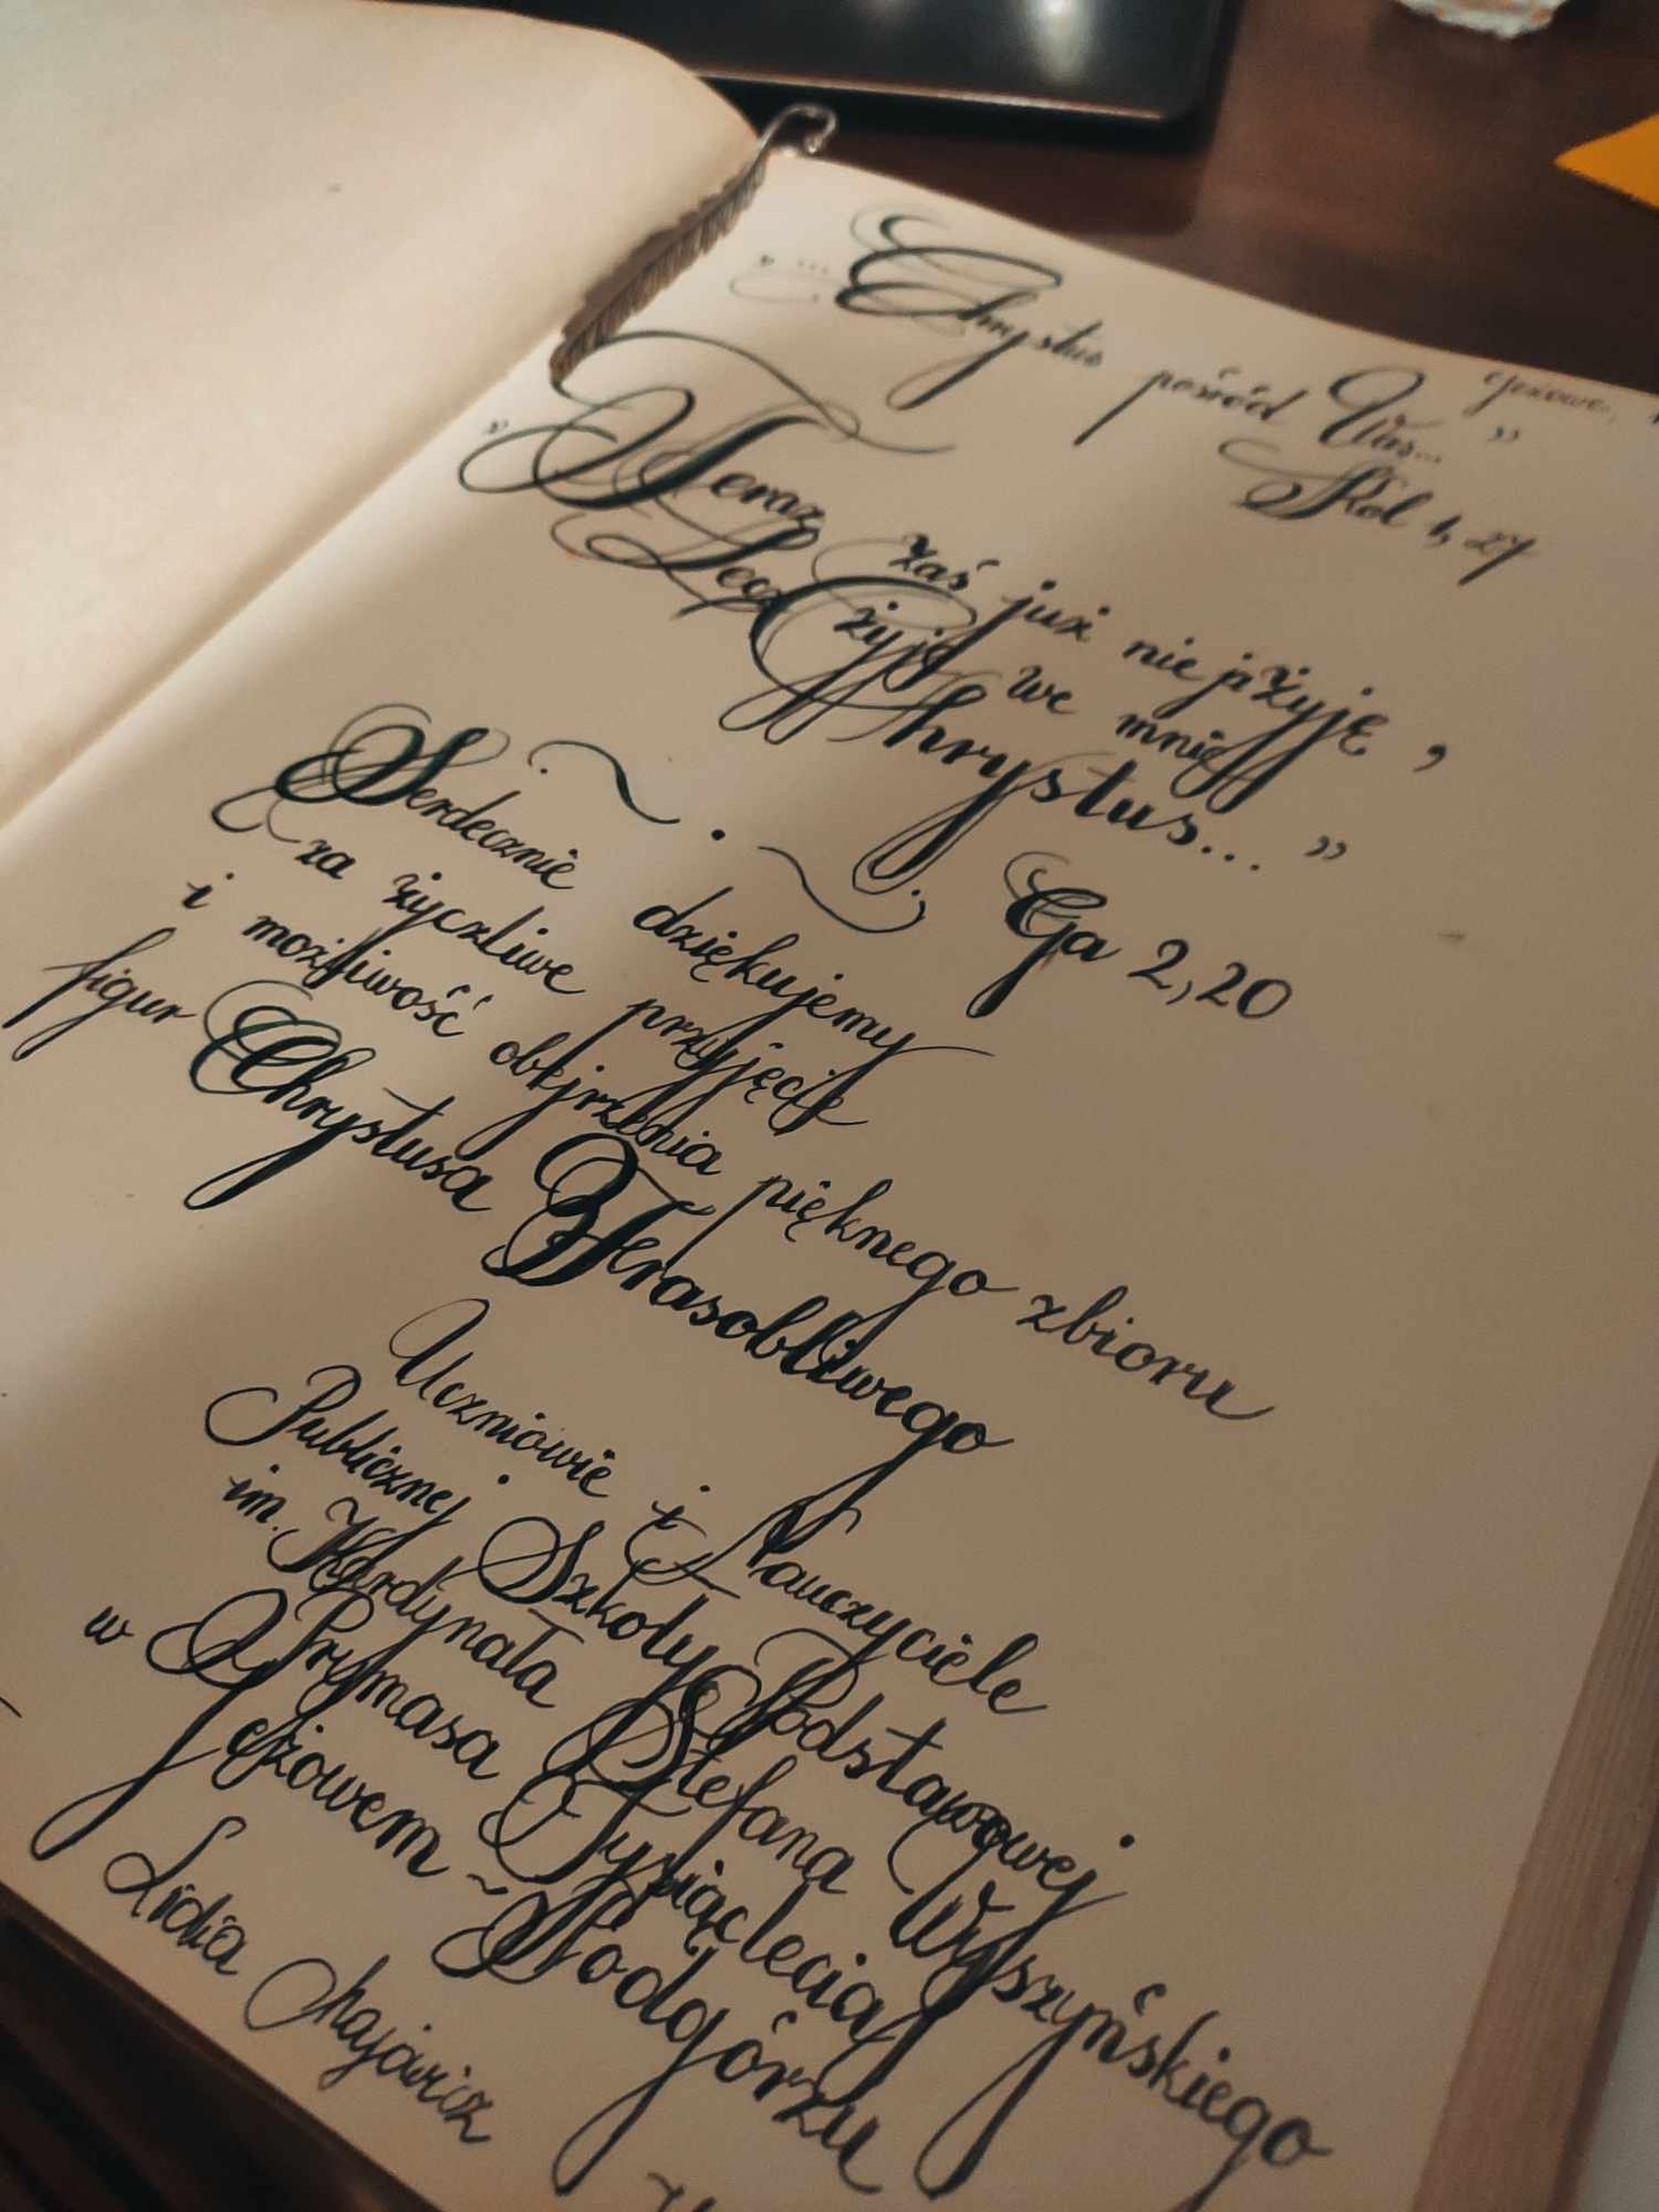 "... Chrystus pośród Was..."
Kol 1, 27
"Teraz zaś już nie ja żyję,
Lecz żyje we mnie
Chrystus..."
Ga 2,20
Serdecznie dziękujemy
za życzliwe przyjęcie
i możliwość obejrzenia pięknego zbioru
figur Chrystusa Frasobliwego
Uczniowie i Nauczyciele
Publicznej Szkoły Podstawowej
im. Kardynała Stefana Wyszyńskiego
Prymasa Tysiąclecia
w Jeżowem - Podgórzu
Lidia